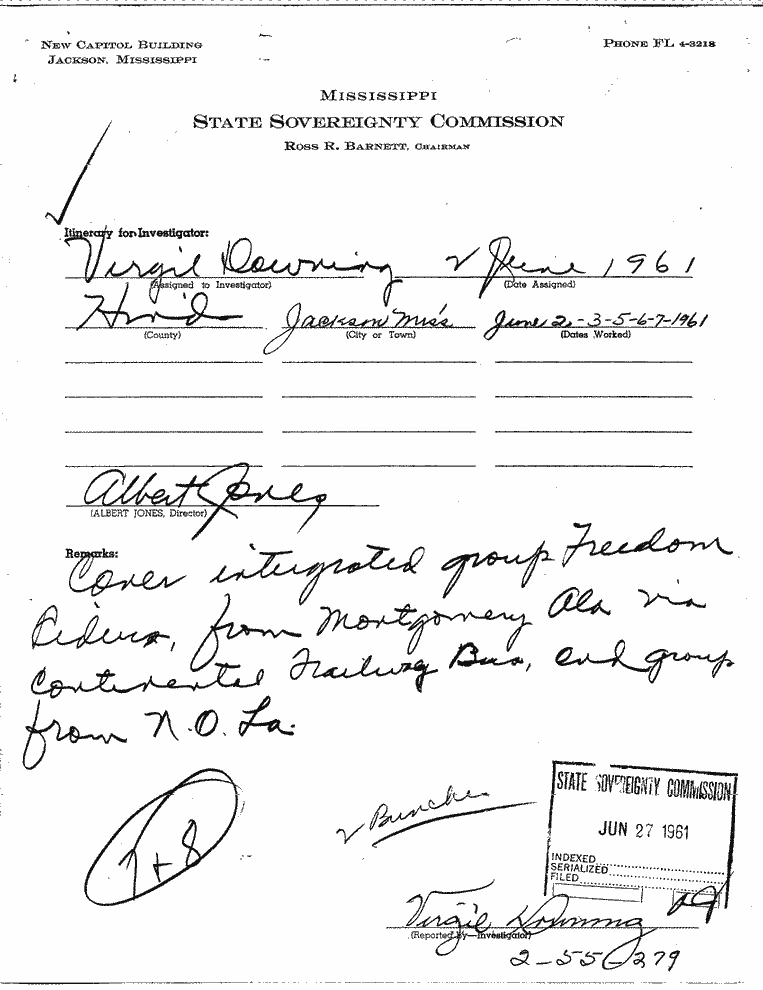 NEW CAPITOL BUILDING
JACKSON, MISSISSIPPI
PHONE FL 4-3218
MISSISSIPPI
STATE SOVEREIGNTY COMMISSION
ROSS R. BARNETT, CHAIRMAN
Itinerary for Investigator:
Virgil Downing 2 June 1961
(Assigned to Investigator) (Date Assigned)
Hinds Jackson Miss June 2-3-5-6-7-1961
(County) (City or Town) (Dates Worked)
Albert Jones
(ALBERT JONES, Director)
Remarks:
Cover intergrated group Freedom
Riders, from Montgomery Ala via
Continental Trailway Bus, and group
from N.O. La.
7+8
2 Bunches
STATE SOVEREIGNTY COMMISSION
JUN 27 1961
INDEXED
SERIALIZED
FILED
Virgil Downing
(Reported By—Investigator)
2-55-279